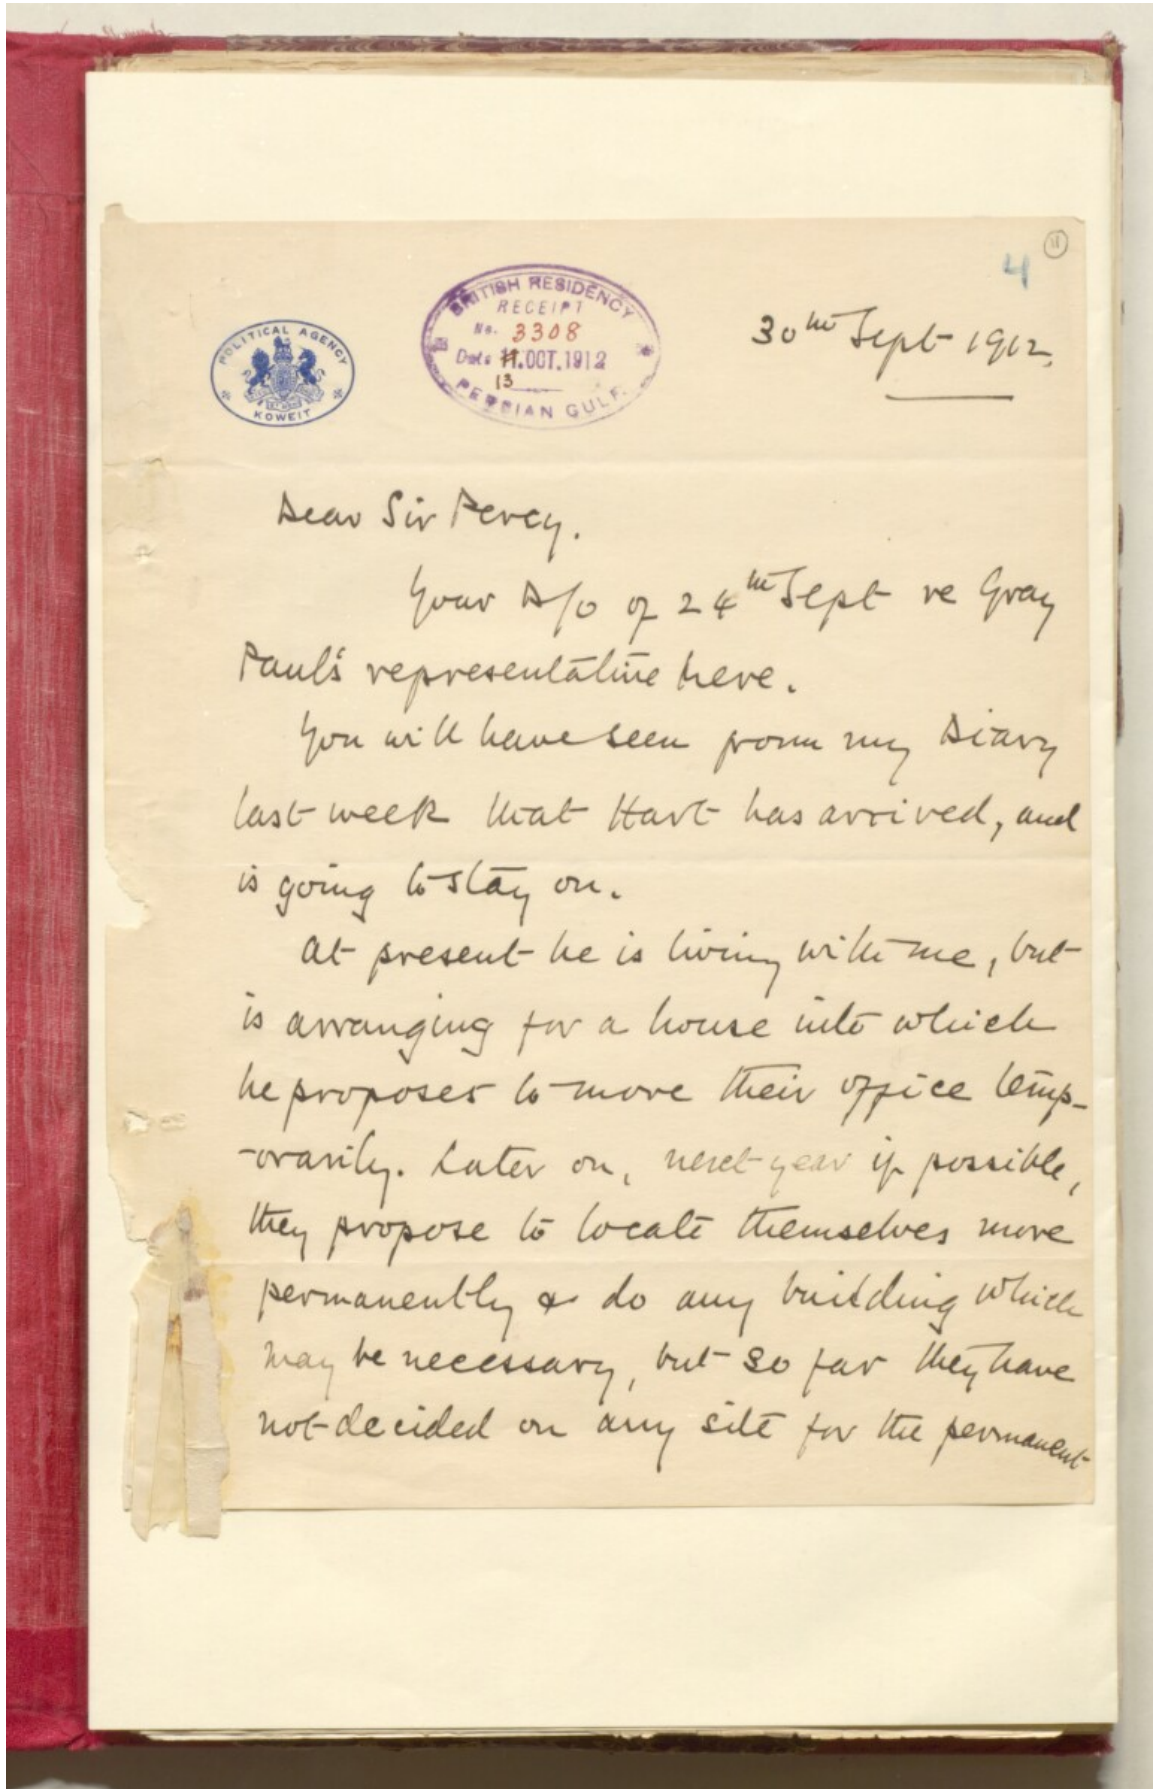 11
4
POLITICAL AGENCY
KOWEIT
BRITISH RESIDENCY
RECEIPT
No. 3308
Date 11.OCT.1912
13
PERSIAN GULF.
30th Sept 1912.
Dear Sir Percy.
Your D/O of 24th Sept re Gray
Paul's representative here.
You will have seen from my Diary
last week that Hart has arrived, and
is going to stay on.
At present he is living with me, but
is arranging for a house into which
he proposes to move their office temp-
-orarily. Later on, next year if possible,
they propose to locate themselves more
permanently & do any building which
may be necessary, but so far they have
not decided on any site for the permanent